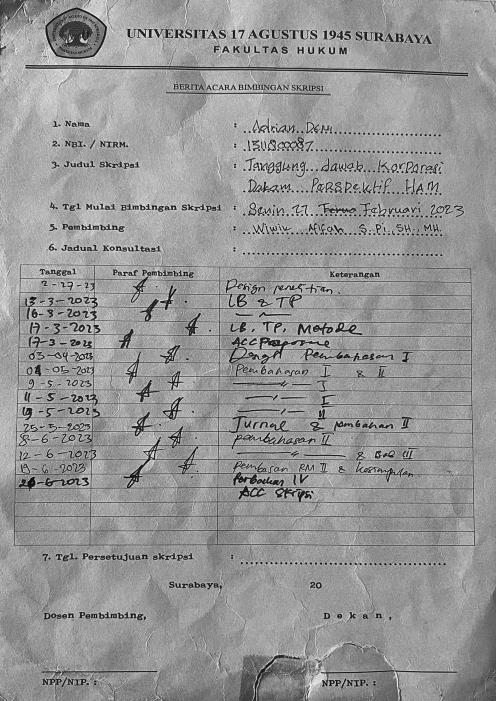 UNIVERSITAS 17 AGUSTUS 1945 SURABAYA
FAKULTAS HUKUM
BERITA ACARA BIMBINGAN SKRIPSI
1. Nama : Adrian Deni
2. NBI. / NIRM. : 1311800087
3. Judul Skripsi : Tanggung Jawab Korporasi
Dalam Perspektif HAM
4. Tgl Mulai Bimbingan Skripsi : Senin 27 Februari 2023
5. Pembimbing : Wiwik Afifah S.Pi., SH., MH.
6. Jadual Konsultasi :
Tanggal Paraf Pembimbing Keterangan
2-27-23 Design penelitian.
13-3-2023 LB & TP
16-3-2023
17-3-2023 LB, TP, Metode
17-3-2023 ACC
03-04-2023 Pembahasan I
04-05-2023 Pembahasan I & II
9-5-2023 I
11-5-2023 I
19-5-2023 II
25-5-2023 Jurnal & pembahan II
8-6-2023 pembahasan II
12-6-2023 & Bab III
19-6-2023 Pembasan RM II & Kesimpulan
26-6-2023 Perbaikan IV
ACC Skripsi
7. Tgl. Persetujuan skripsi :
Surabaya, 20
Dosen Pembimbing, Dekan,
NPP/NIP. : NPP/NIP. :